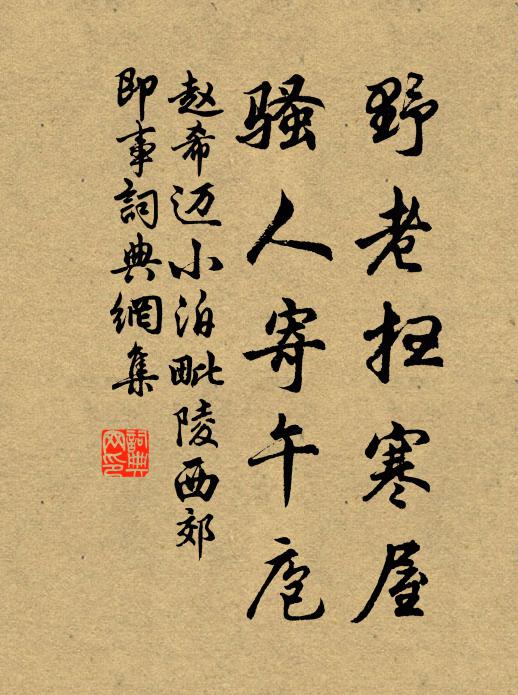 野老扫寒屋
骚人寄午庖
赵希迈小泊毗陵西郊
即事詞典網集
詞典
网印